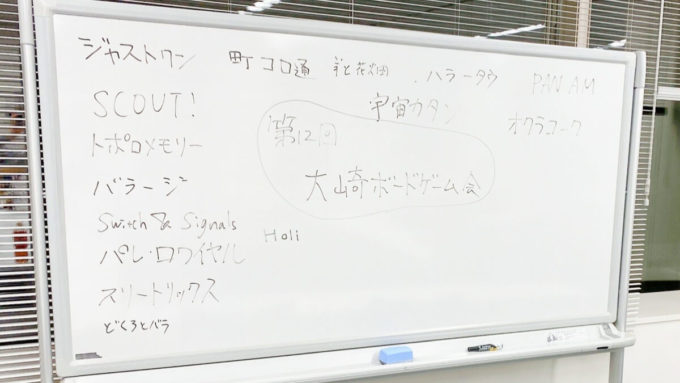 ジャストワン
町コロ通
羊と花畑
ハラータウ
PAN AM
SCOUT!
宇宙カタン
オクラコーク
トポロメモリー
第12回
大山崎ボードゲーム会
バラージ
Switch & Signals
Holi
パレ・ロワイヤル
スリートリックス
どくろとバラ